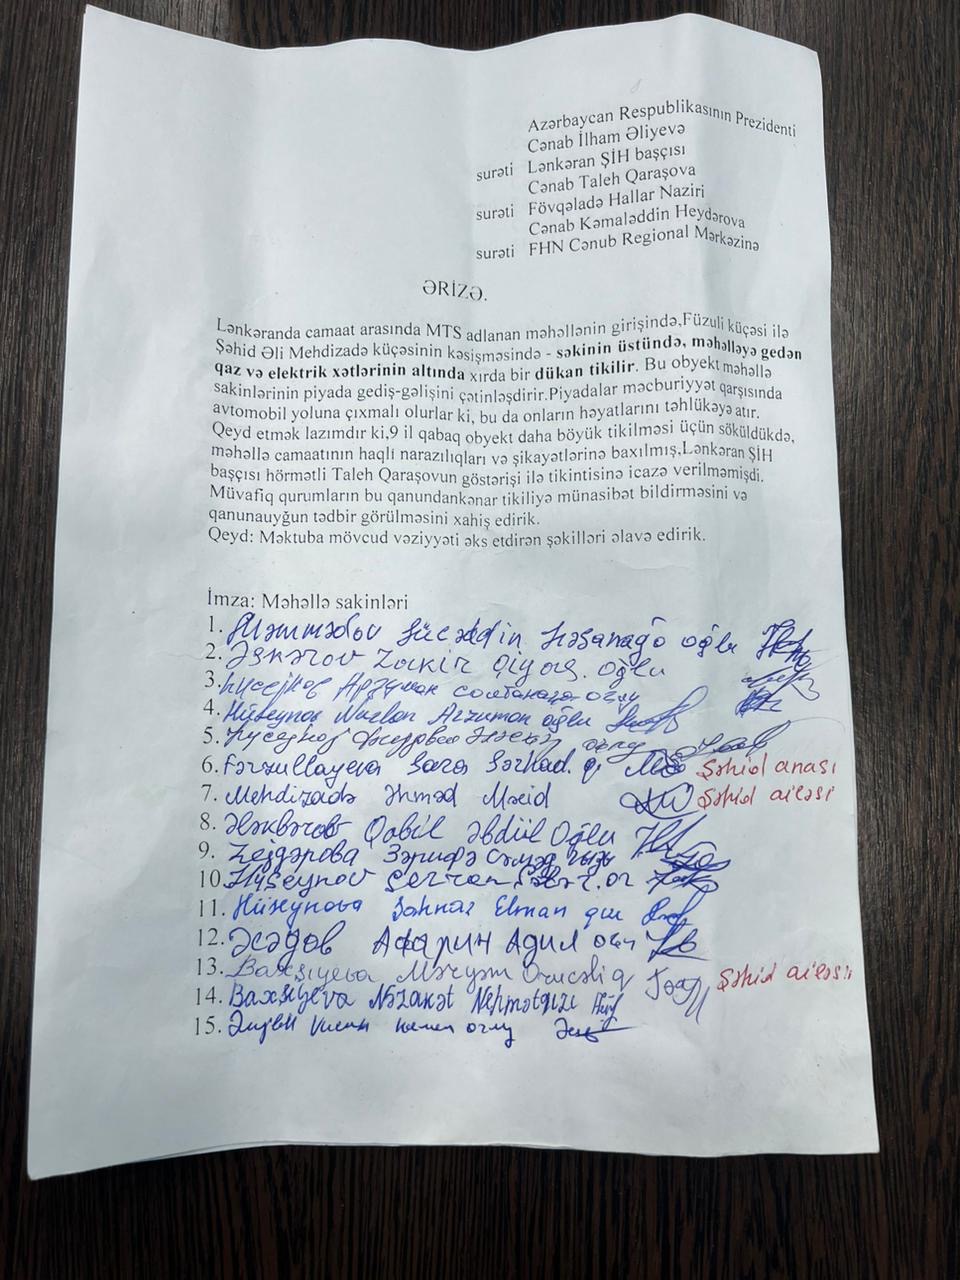 Azərbaycan Respublikasının Prezidenti
Cənab İlham Əliyevə
surəti Lənkəran ŞİH başçısı
Cənab Taleh Qaraşova
surəti Fövqəladə Hallar Naziri
Cənab Kəmaləddin Heydərova
surəti FHN Cənub Regional Mərkəzinə
ƏRİZƏ.
Lənkəranda camaat arasında MTS adlanan məhəllənin girişində,Füzuli küçəsi ilə
Şəhid Əli Mehdizadə küçəsinin kəsişməsində - səkinin üstündə, məhəlləyə gedən
qaz və elektrik xətlərinin altında xırda bir dükan tikilir. Bu obyekt məhəllə
sakinlərinin piyada gediş-gəlişini çətinləşdirir.Piyadalar məcburiyyət qarşısında
avtomobil yoluna çıxmalı olurlar ki, bu da onların həyatlarını təhlükəyə atır.
Qeyd etmək lazımdır ki,9 il qabaq obyekt daha böyük tikilməsi üçün söküldükdə,
məhəllə camaatının haqli narazılıqları və şikayətlərinə baxılmış,Lənkəran ŞİH
başçısı hörmətli Taleh Qaraşovun göstərişi ilə tikintisinə icazə verilməmişdi.
Müvafiq qurumların bu qanundankənar tikiliyə münasibət bildirməsini və
qanunauyğun tədbir görülməsini xahiş edirik.
Qeyd: Məktuba mövcud vəziyyəti əks etdirən şəkilləri əlavə edirik.
İmza: Məhəllə sakinləri
1. Məmmədov Həsənağa oğlu
2. Əsgərov Zakir oğlu
3.
4. Hüseynov Arzuman oğlu
5.
6. Fərzullayeva Sara Şəhid anası
7. Mehdizadə Əhməd Məcid Şəhid ailəsi
8. Ələkbərov Qabil Əbdül Oğlu
9.
10. Hüseynov
11. Hüseynova Şahnaz Elman qızı
12. Әсәдов Адил
13. Baxşıyeva Məryəm Şəhid ailəsi
14. Baxşıyeva Nəzakət Nehmət qızı
15.